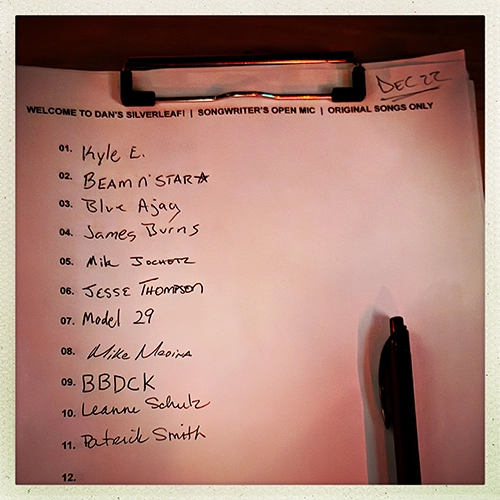 DEC 22
WELCOME TO DAN'S SILVERLEAF! | SONGWRITER'S OPEN MIC | ORIGINAL SONGS ONLY
01. Kyle E.
02. BEAM N' STAR
03. Blue Ajay
04. James Burns
05. Mik
06. JESSE THOMPSON
07. Model 29
08. Mike Medina
09. BBDCK
10. Leanne Schulz
11. Patrick Smith
12.